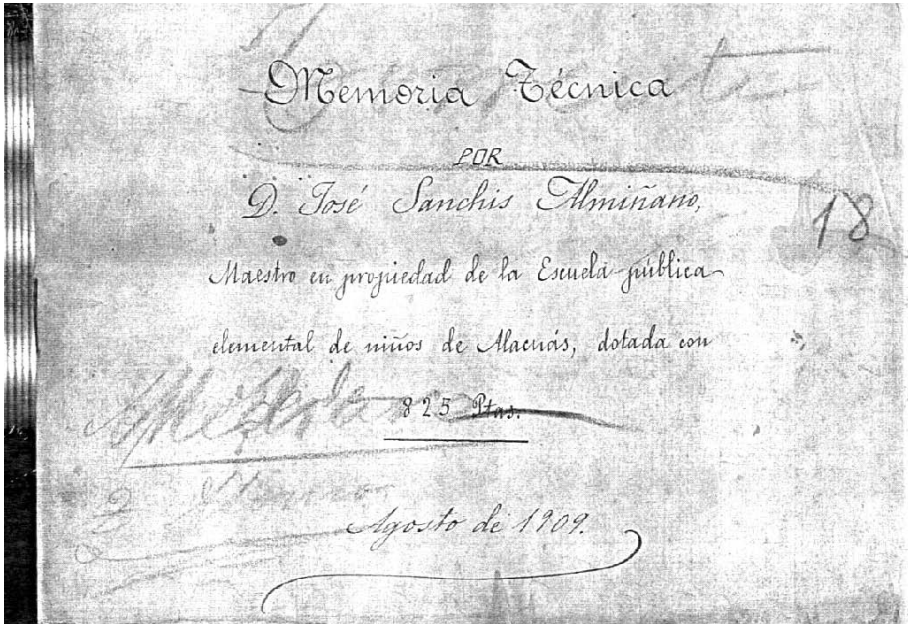 Memoria Técnica
POR
D. José Sanchis Almiñano,
18
Maestro en propiedad de la Escuela pública
elemental de niños de Alacuás, dotada con
825 Ptas.
Agosto de 1909.